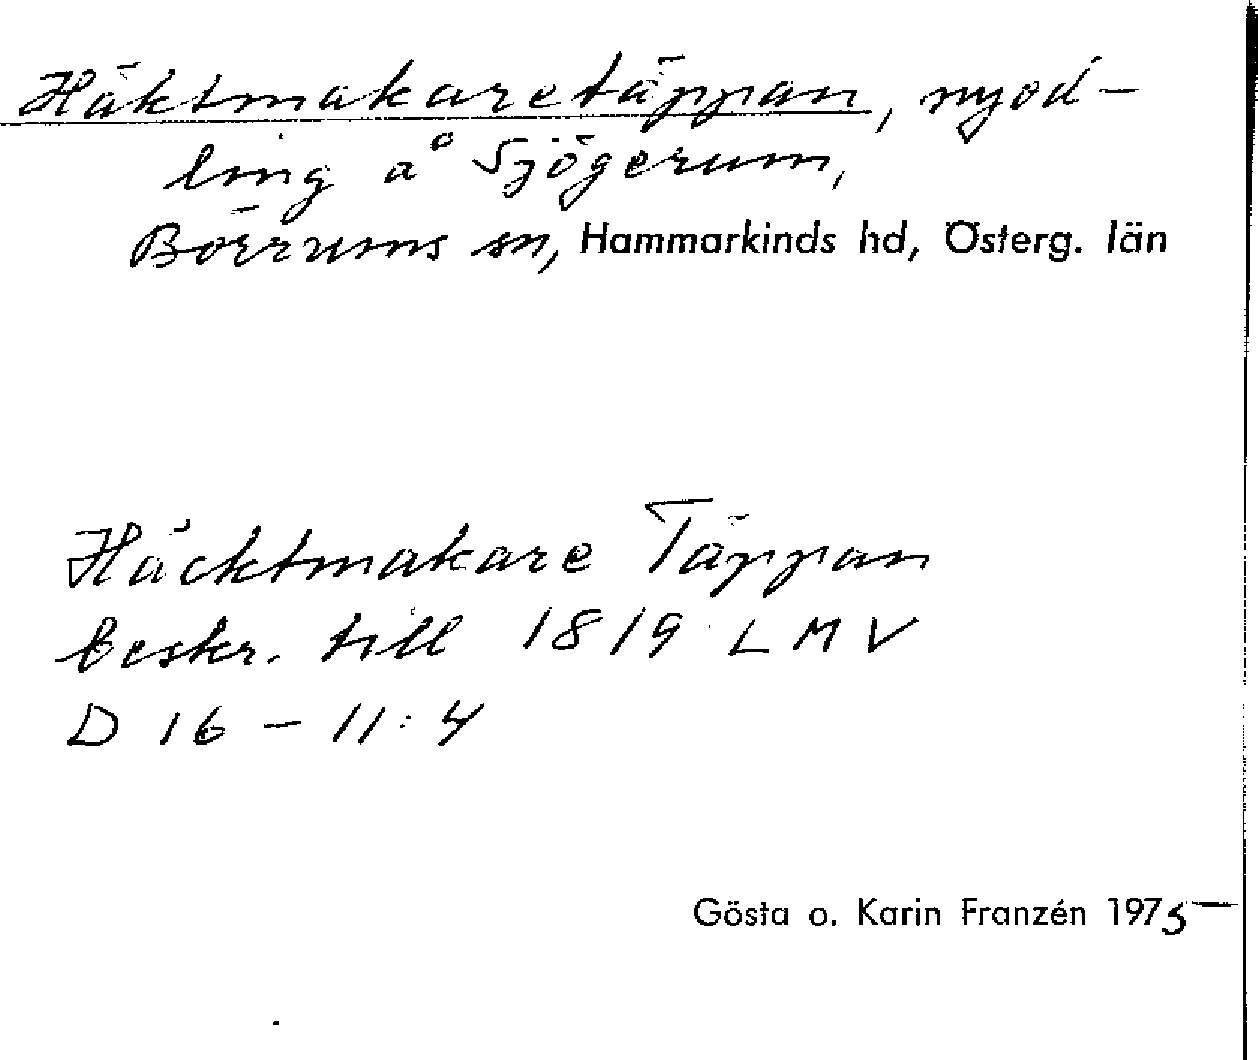 Häktmakaretäppan, nyod-
ling å Sjögerum,
Börrums sn, Hammarkinds hd, Österg. län
Häcktmakare Täppan
beskr. till 1819 LMV
D 16 - 11:4
Gösta o. Karin Franzén 1975